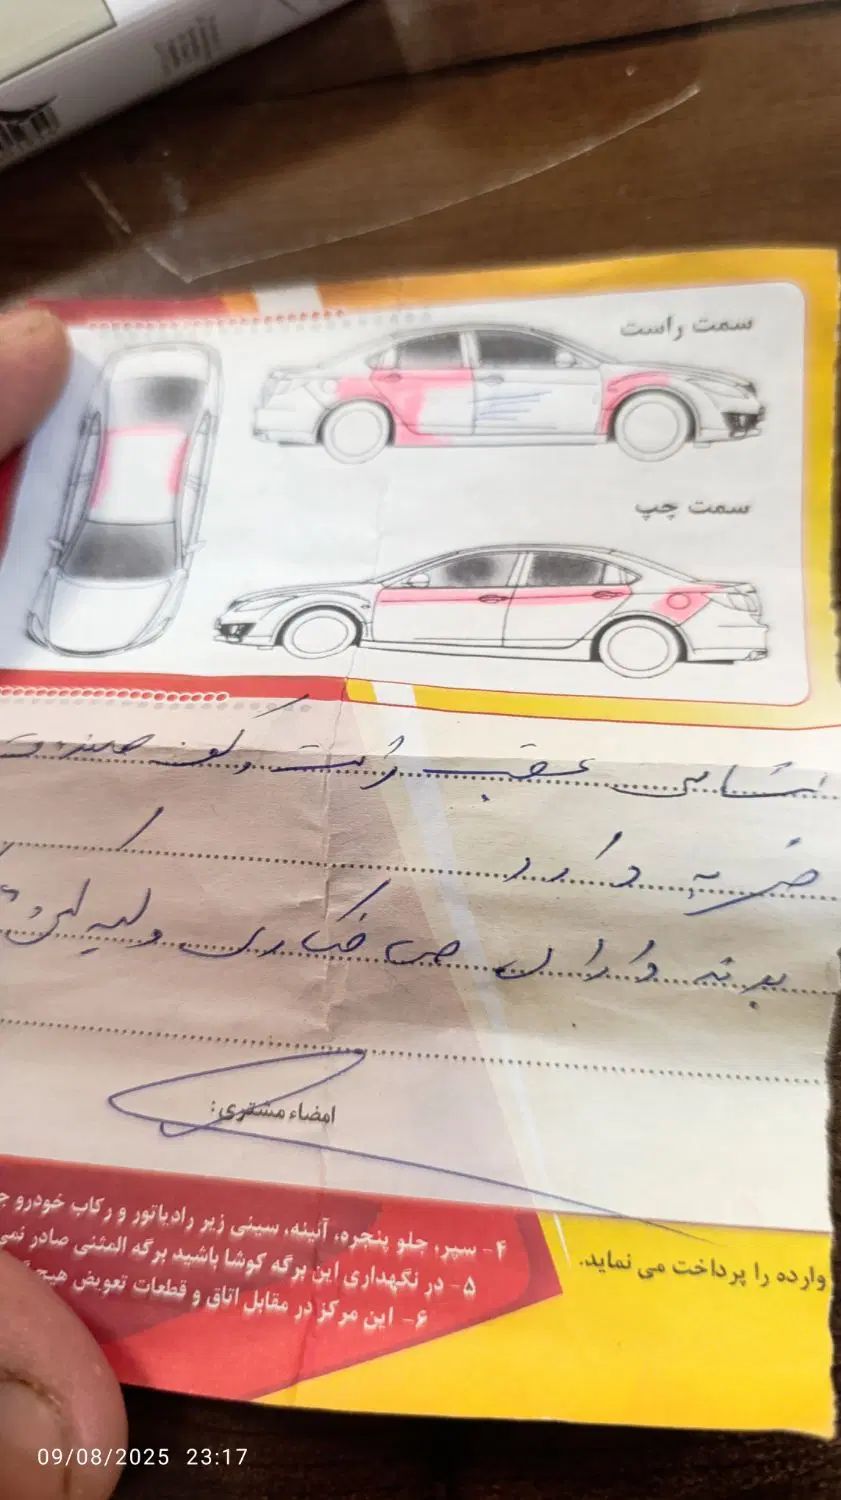 سمت راست
سمت چپ
شاسی عقب راست و کف صندوق
ضربه دارد
بدنه دارای صافکاری و لیسه گیری
امضاء مشتری:
۴- سپر، جلو پنجره، آئینه، سینی زیر رادیاتور و رکاب خودرو
۵- در نگهداری این برگه کوشا باشید برگه المثنی صادر نمی
۶- این مرکز در مقابل اتاق و قطعات تعویض
وارده را پرداخت می نماید.
09/08/2025 23:17